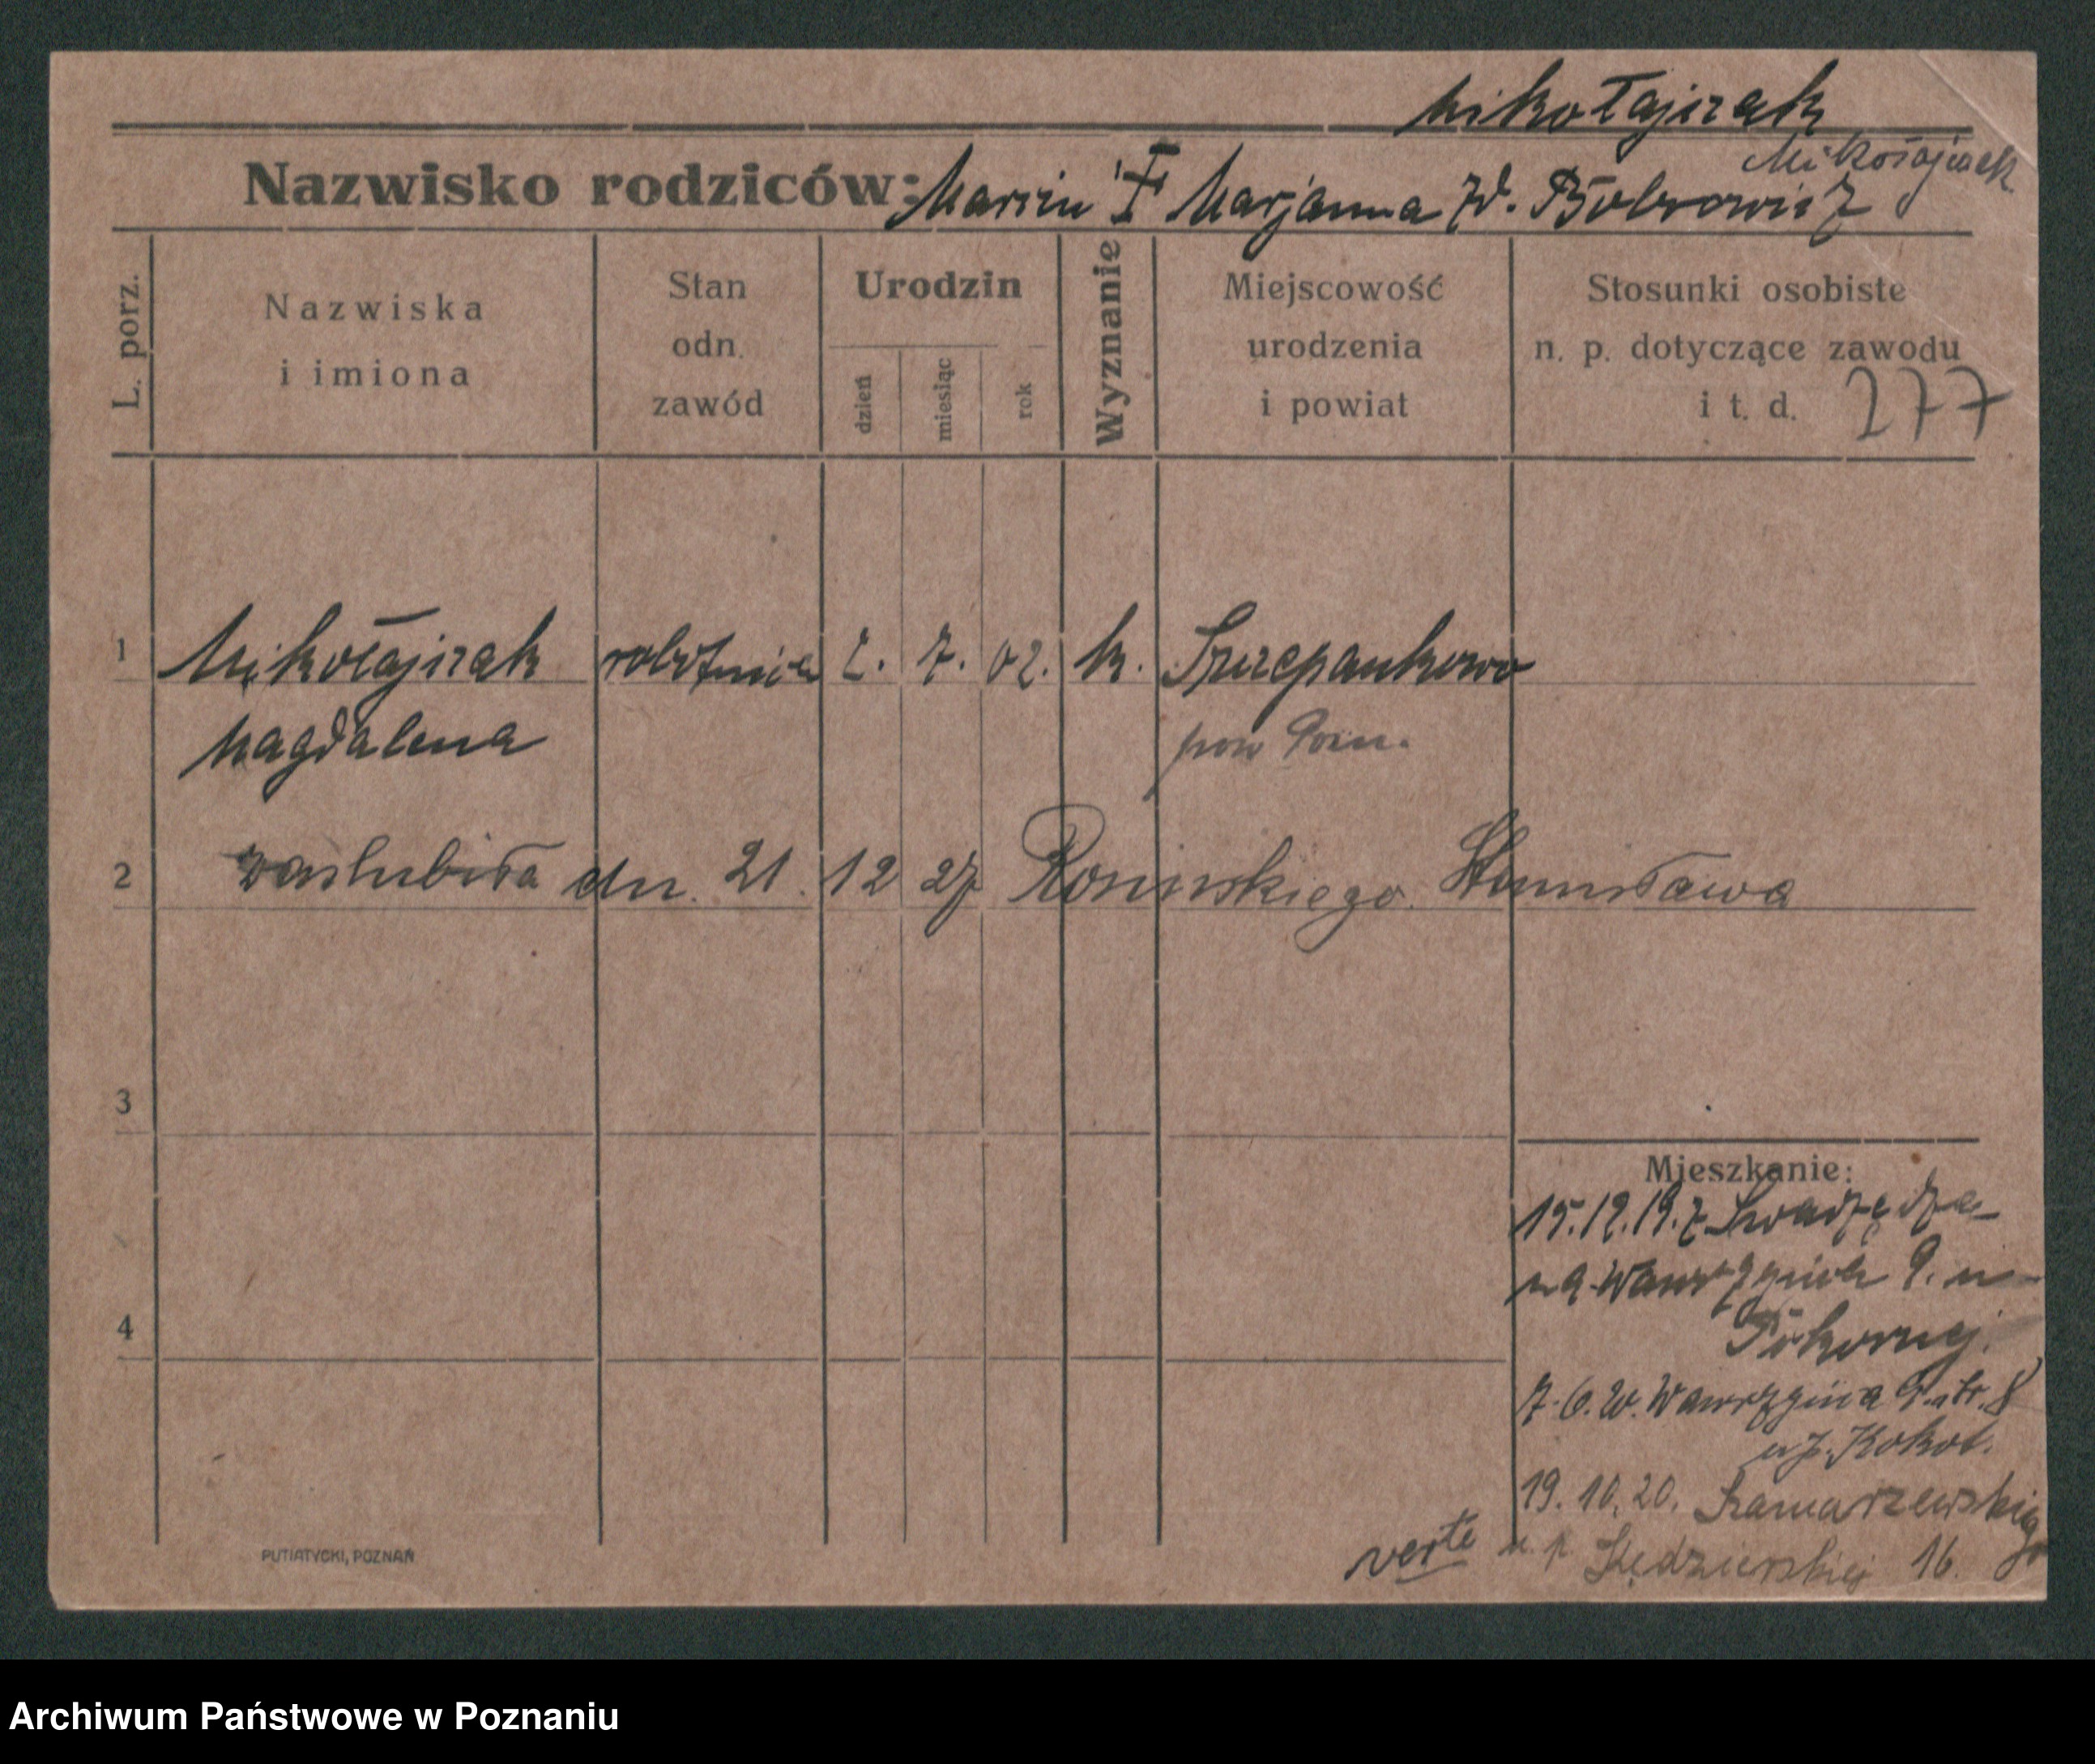 Mikołajczak
Mikołajczak
Nazwisko rodziców: Marcin i Marjanna zd. Bobrowicz
L. porz.
Nazwiska
i imiona
Stan
odn.
zawód
Urodzin
dzień
miesiąc
rok
Wyznanie
Miejscowość
urodzenia
i powiat
Stosunki osobiste
n. p. dotyczące zawodu
i t. d. 277
1 Mikołajczak robotnica 2. 7. 02. k. Szczepankowo
Magdalena pow Pozn.
2 zaslubiła dn. 21. 12 27 Rosinskiego Stanisława
3
4
Mieszkanie:
15.12.19. z Swarzędza
na Wawrzyniak 9. u
Pokornej.
7.6.20. Wawrzyńca 9. 8
u p. Kokot.
19.10.20. Szamarzewskiego
u. p. Kędzierskiej 16.
verte
PUTIATYCKI, POZNAŃ
Archiwum Państwowe w Poznaniu